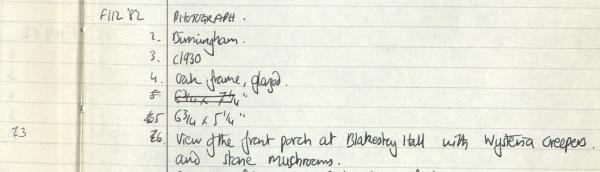 F112 '82 PHOTOGRAPH.
2. Birmingham.
3. c1930
4. Oak frame, glazed.
5 6 3/4 x 7 1/4"
5 6 3/4 x 5 1/4"
£3 6. View of the front porch at Blakesley Hall with Wysteria creepers.
and stone mushrooms.